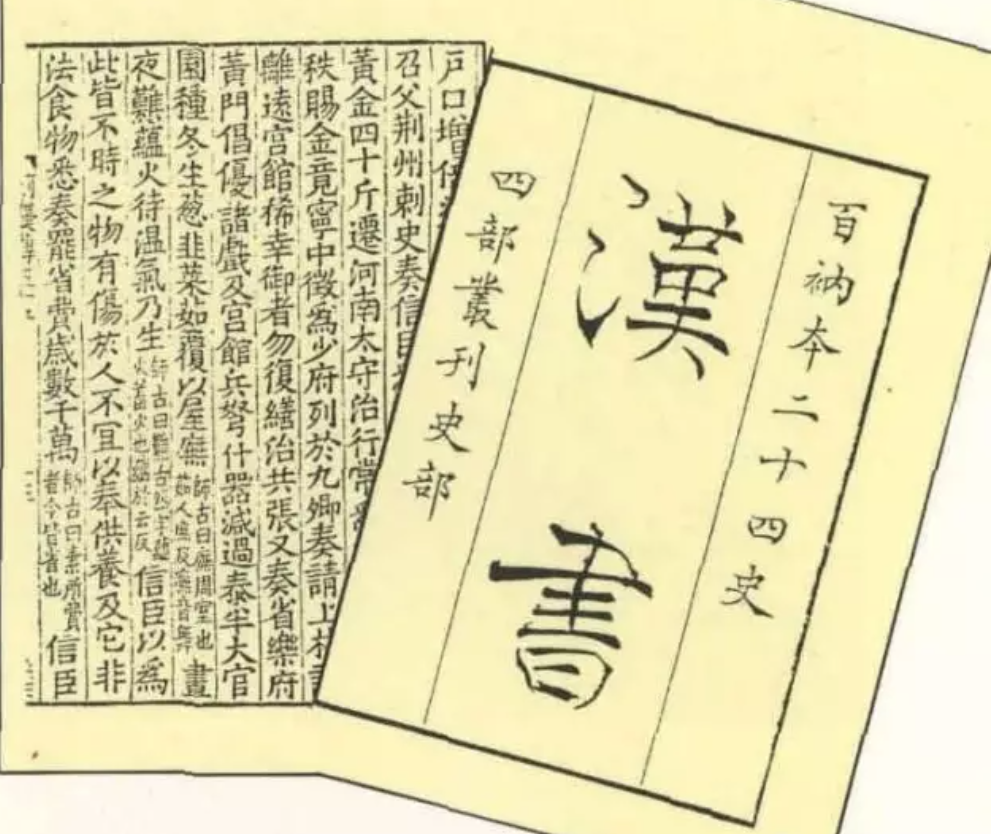 百衲本二十四史
漢書
四部叢刊史部
戶口增
召父荆州刺史奏信臣
黃金四十斤遷河南太守治行常
秩賜金竟寧中徵爲少府列於九卿奏請上林
離遠宮館稀幸御者勿復繕治共張又奏省樂府
黃門倡優諸戲及宮館兵弩什器減過泰半大官
園種冬生葱韭菜茹覆以屋廡師古曰廡周堂也茹人庶反廡音舞晝
夜難蘊火待溫氣乃生師古曰難古然字蘊火蓄火也蘊於云反信臣以爲
此皆不時之物有傷於人不宜以奉供養及它非
法食物悉奏罷省費歲數千萬師古曰素所費者今皆省也信臣